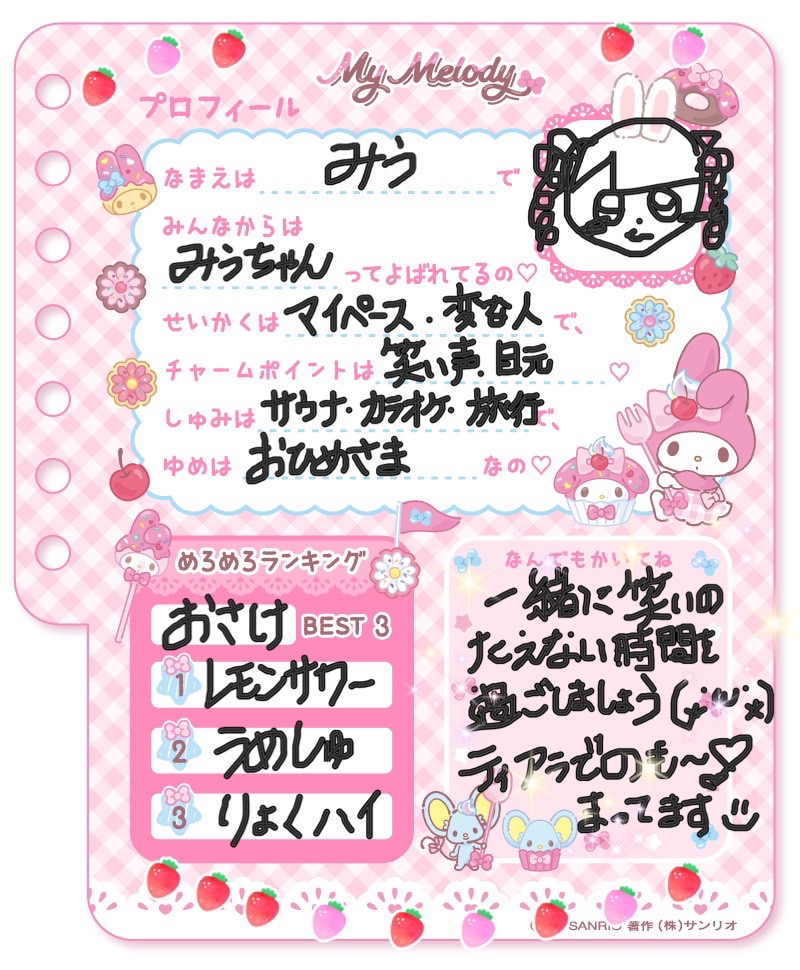 My Melody
プロフィール
なまえは みう で
みんなからは
みうちゃん ってよばれてるの♡
せいかくは マイペース・変な人 で、
チャームポイントは 笑い声・目元 ♡
しゅみは サウナ・カラオケ・旅行 で、
ゆめは おひめさま なの♡
めろめろランキング
おさけ BEST 3
1 レモンサワー
2 うめしゅ
3 りょくハイ
なんでもかいてね
一緒に笑いの
たえない時間を
過ごしましょう
ティアラでのも〜♡
まってます
SANRIO 著作(株)サンリオ